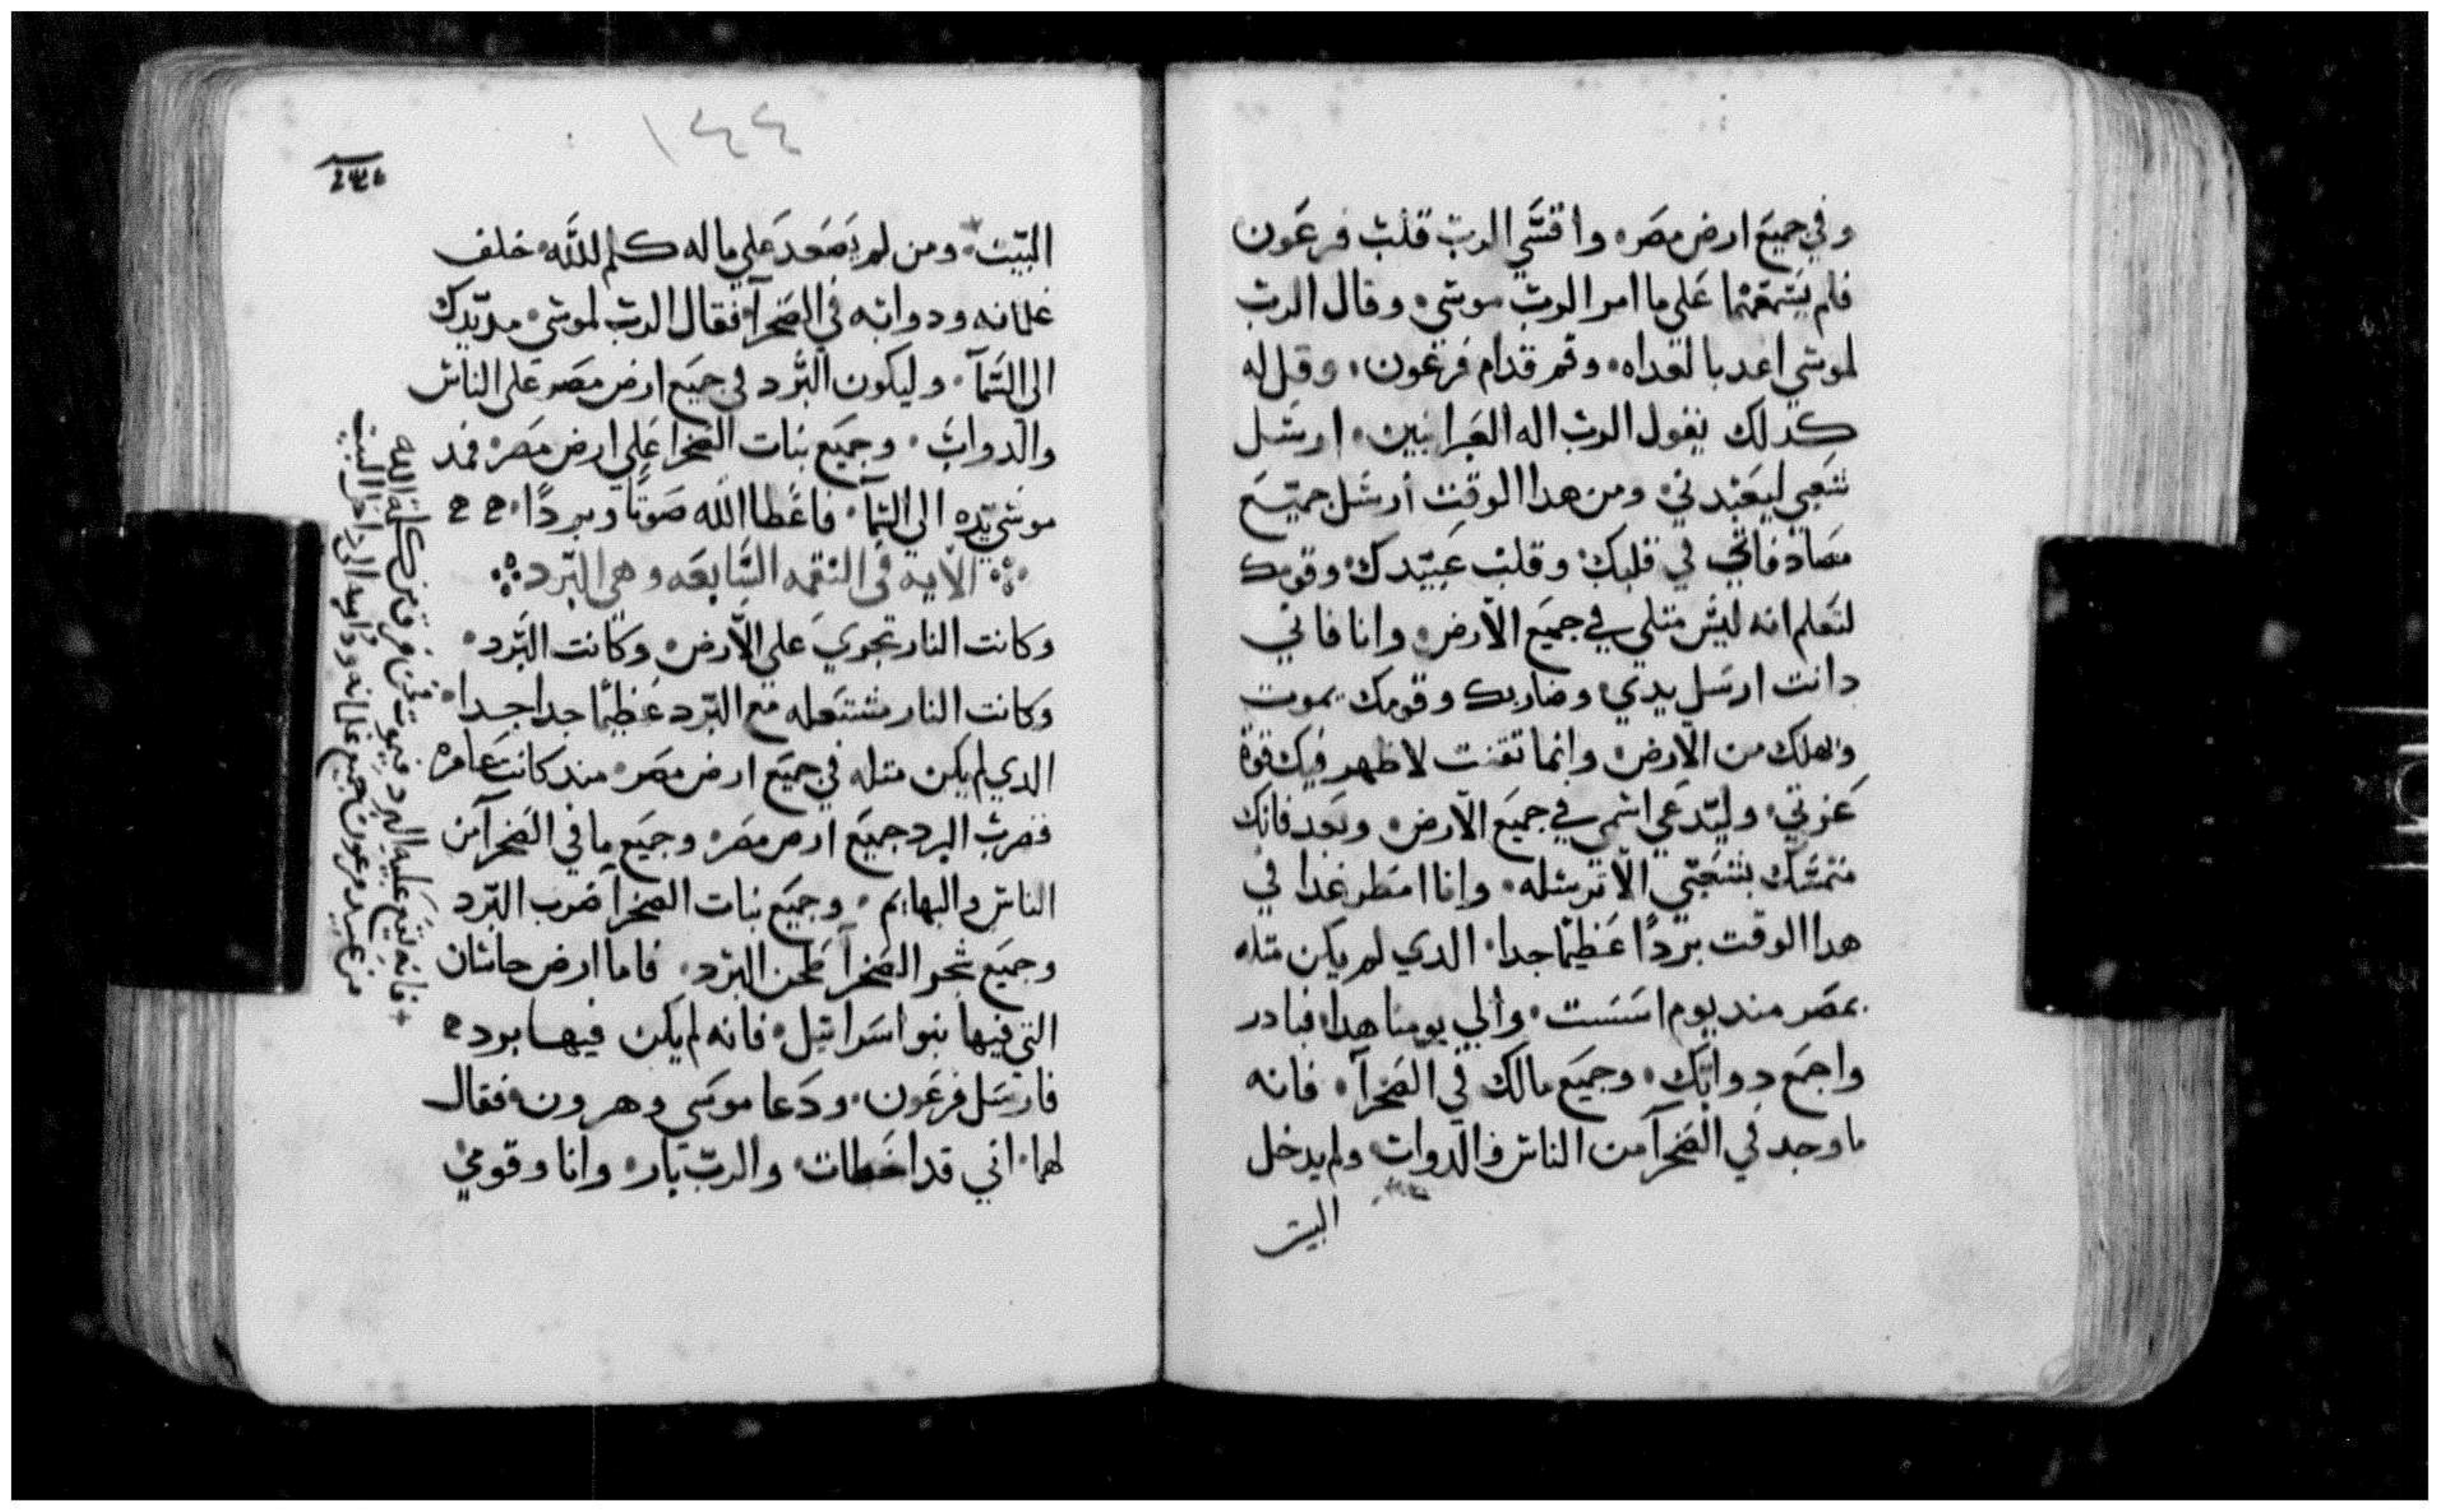 وفي جميع ارض مصر، واقسي الرب قلب فرعون
فلم يسمعهما علي ما امر الرب موسي، وقال الرب
لموسي اغد بالغداه، وقم قدام فرعون، وقل له
كدلك يقول الرب اله العبرانيين، ارسل
شعبي ليعبدني، ومن هدا الوقت أرسل جميع
في قلبك، وقلب عبيدك، وقومك
لتعلم انه ليس متلي في جميع الأرض، وانا فاني
دانت ارسل يدي، وضاربك وقومك بموت
وتهلك من الارض، وانما تقنت لاظهر فيك قوة
عزتي، وليدعي اسمي في جميع الارض، وبعد فانك
متمسك بشعبي الا ترسله، وانا امطر غدا في
هدا الوقت بردًا عظيمًا جدا، الدي لم يكن متله
بمصر مند يوم اسست، والي يومنا هدا، فبادر
واجمع دوابك، وجميع مالك في الصحرآ، فانه
ما وجد في الصحرآ من الناس والدواب، ولم يدخل
البيت
١٤٤
البيت، ومن لم يصعد علي ماله كلم الله، خلف
غلمانه ودوابه في الصحرآ، فقال الرب لموسي، مد يدك
الي السمآ، وليكون البرد في جميع ارض مصر علي الناس
والدواب، وجميع نبات الصحرا علي ارض مصر، فمد
موسي يده الي السمآ، فاعطا الله صوتًا وبردًا،
الآية في النقمه السابعه وهي البرد
وكانت النار تجري علي الأرض، وكانت البرد،
وكانت النار مشتعله مع البرد عظيمًا جدا جدا،
الدي لم يكن متله في جميع ارض مصر، مند كانت عامره
فضرب البرد جميع ارض مصر، وجميع ما في الصحرآ من
الناس والبهايم، وجميع نبات الصحرآ ضرب البرد
وجميع شجر الصحرآ طحن البرد، فاما ارض جاشان
التي فيها بنو اسراييل، فانه لم يكن فيها برد
فارسل فرعون، ودعا موسي وهرون، فقال
لهما، اني قد اخطات، والرب بار، وانا وقومي
+ فانه يقع عليه البرد فيموت فمن فرق من كلمة الله
من عبيد فرعون جميع غلمانه ودوابه الي داخل البيت